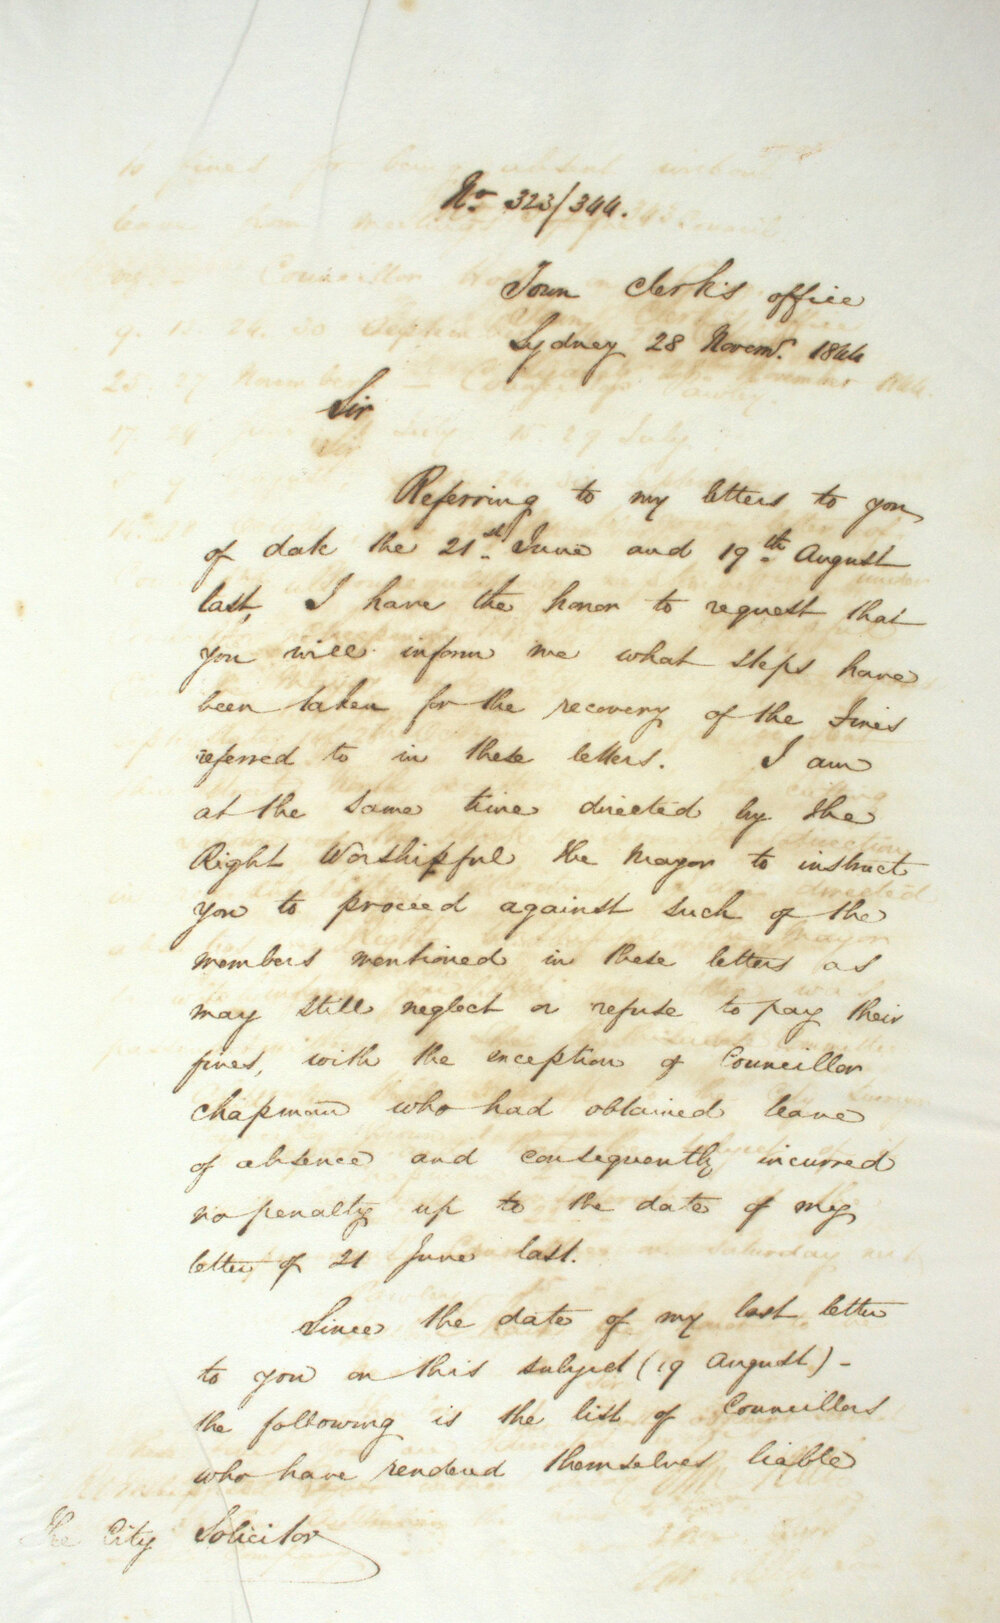 No. 323/344.
Town Clerk's office
Sydney 28 Novemr. 1844
Sir
Referring to my letters to you
of date the 21st June and 19th August
last, I have the honor to request that
you will inform me what steps have
been taken for the recovery of the Fines
referred to in these letters. I am
at the same time directed by the
Right Worshipful the Mayor to instruct
you to proceed against such of the
members mentioned in these letters as
may still neglect or refuse to pay their
fines, with the exception of Councillor
Chapman who had obtained leave
of absence and consequently incurred
no penalty up to the date of my
letter of 21 June last.
Since the date of my last letter
to you on this subject (19 August) -
the following is the list of Councillors
who have rendered themselves liable
The City Solicitor